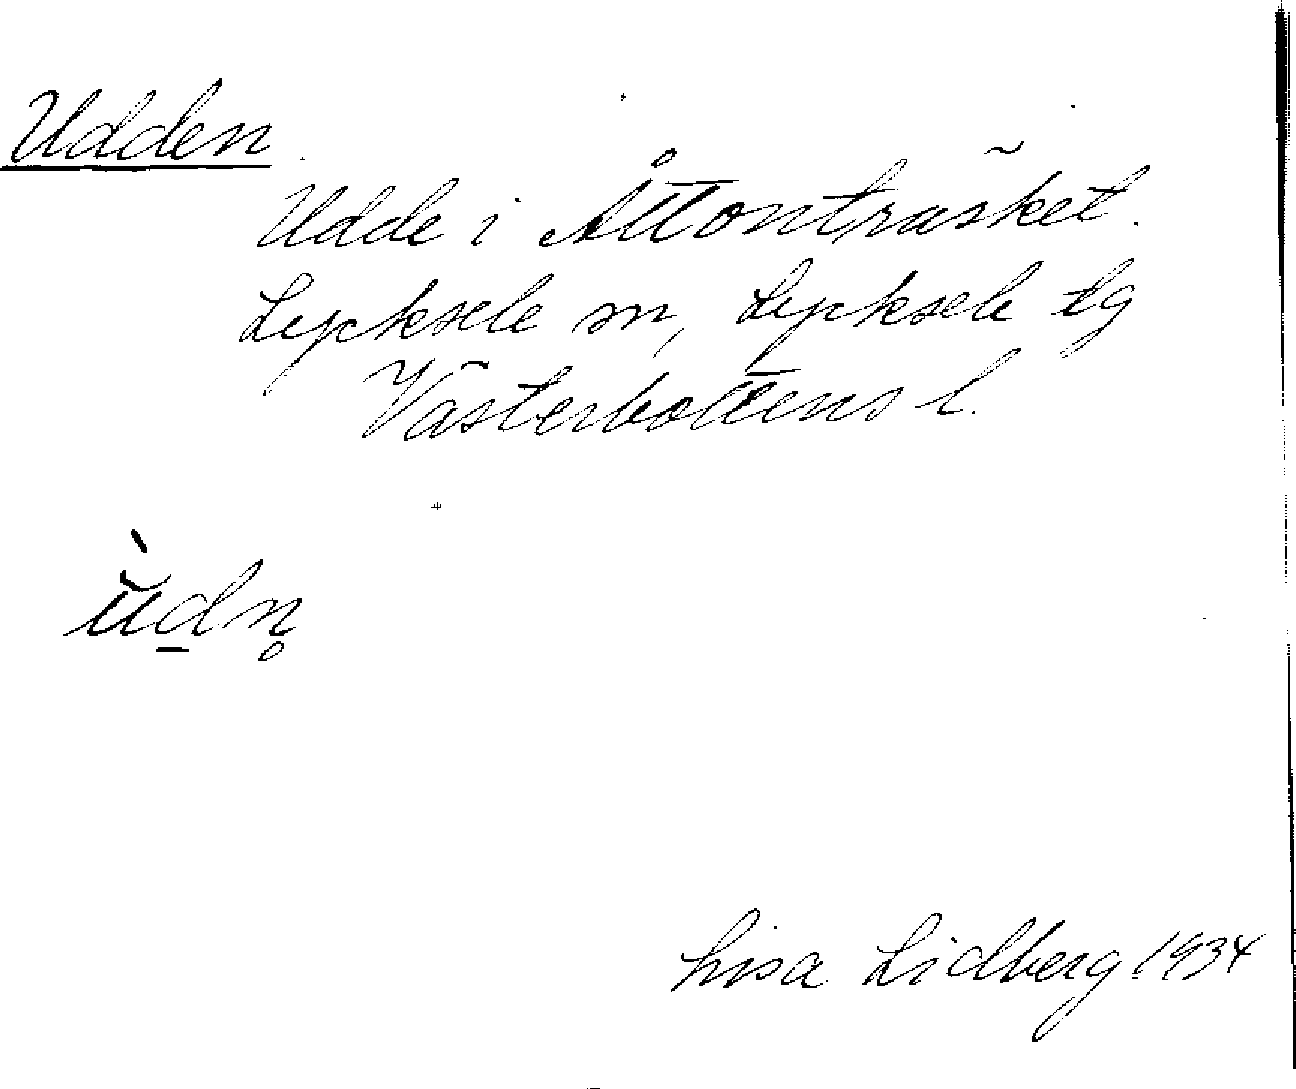 Udden
Udde i Åttonträsket.
Lycksele sn, Lycksele tg
Västerbottens l.
ùdn̥
Lisa Lidberg 1934